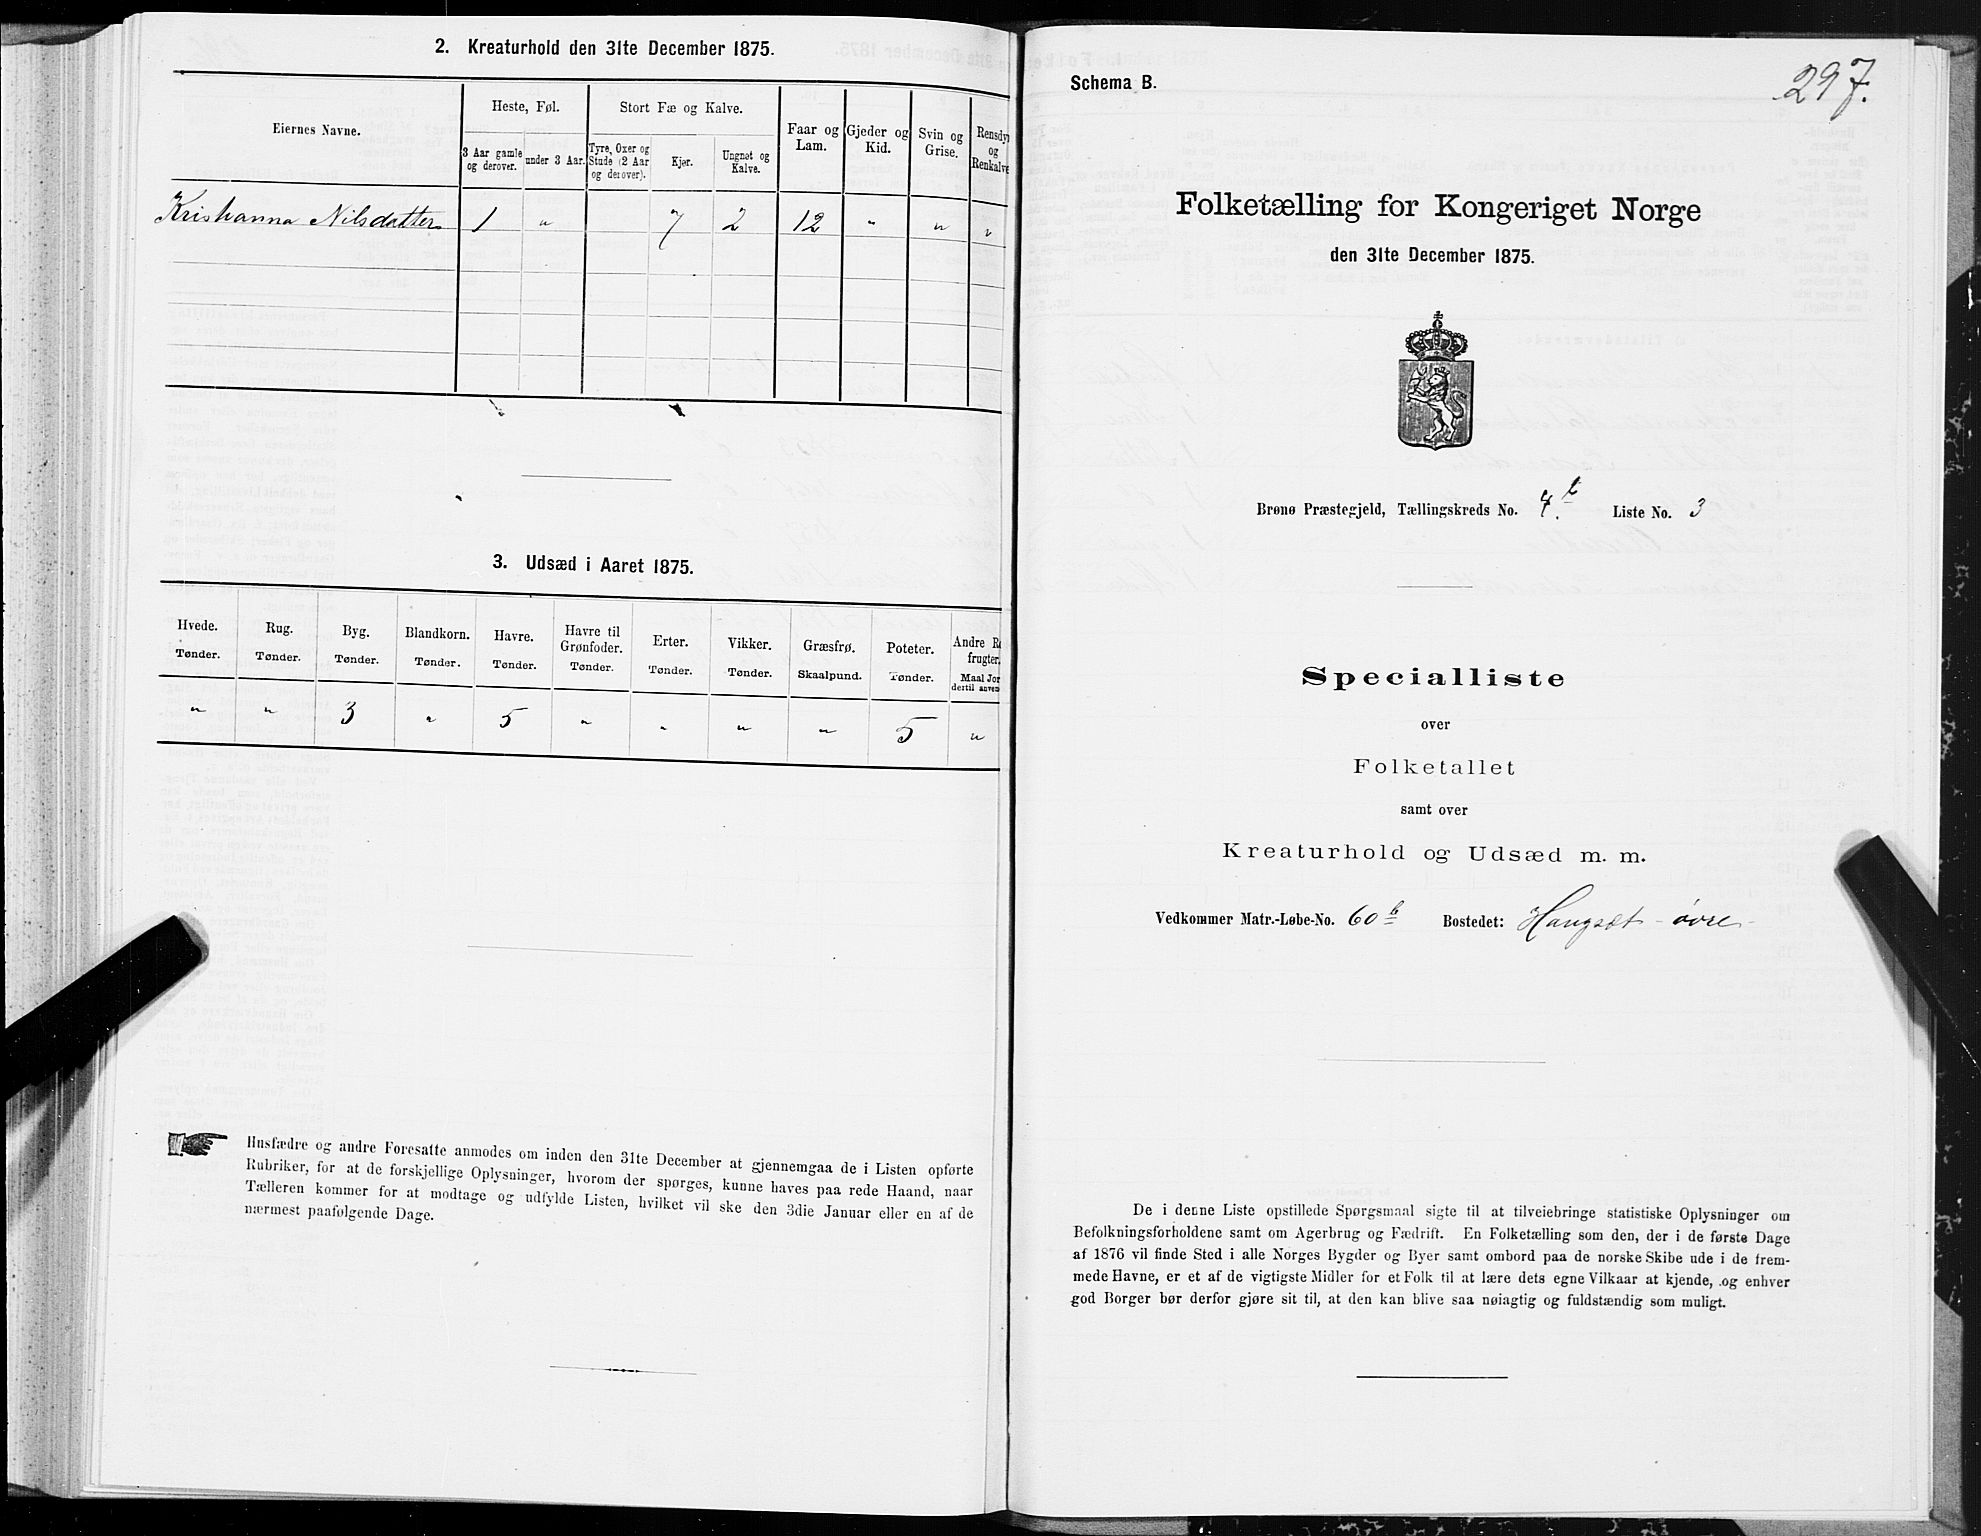 2. Kreaturhold den 31te December 1875.
Eiernes Navne.
Heste, Føl.
Stort Fæ og Kalve.
Faar og Lam.
Gjeder og Kid.
Svin og Grise.
Rensdyr og Renkalve
3 Aar gamle og derover.
under 3 Aar.
Tyre, Oxer og Stude (2 Aar og derover).
Kjør.
Ungnøt og Kalve.
Kristianna Nilsdatter 1 " 7 2 12 " " "
3. Udsæd i Aaret 1875.
Hvede. Rug. Byg. Blandkorn. Havre. Havre til Grønfoder. Erter. Vikker. Græsfrø. Poteter. Andre Ro frugter.
Tønder. Tønder. Tønder. Tønder. Tønder. Tønder. Tønder. Tønder. Skaalpund. Tønder. Maal Jor dertil anven
" " 3 " 5 " " " " 5 "
Husfædre og andre Foresatte anmodes om inden den 31te December at gjennemgaa de i Listen opførte
Rubriker, for at de forskjellige Oplysninger, hvorom der spørges, kunne haves paa rede Haand, naar
Tælleren kommer for at modtage og udfylde Listen, hvilket vil ske den 3die Januar eller en af de
nærmest paafølgende Dage.
297.
Schema B.
Folketælling for Kongeriget Norge
den 31te December 1875.
Brønø Præstegjeld, Tællingskreds No. 4. Liste No. 3
Specialliste
over
Folketallet
samt over
Kreaturhold og Udsæd m. m.
Vedkommer Matr.-Løbe-No. 60 b Bostedet: Hongsæt - øvre -
De i denne Liste opstillede Spørgsmaal sigte til at tilveiebringe statistiske Oplysninger om
Befolkningsforholdene samt om Agerbrug og Fædrift. En Folketælling som den, der i de første Dage
af 1876 vil finde Sted i alle Norges Bygder og Byer samt ombord paa de norske Skibe ude i de frem-
mede Havne, er et af de vigtigste Midler for et Folk til at lære dets egne Vilkaar at kjende, og enhver
god Borger bør derfor gjøre sit til, at den kan blive saa nøiagtig og fuldstændig som muligt.